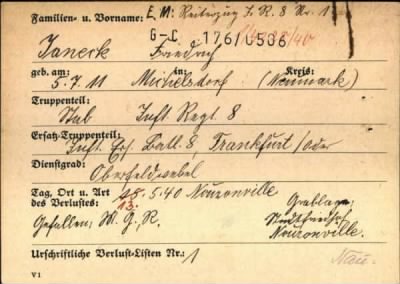 Familien- u. Vorname: E. M: Reiterzug J. R. 8 Nr. 1
G-C 176/0506
Janeck Friedrich
geb. am: in: Kreis:
5. 7. 11 Michelsdorf (Neumark)
Truppenteil:
Stab Inft. Regt. 8
Ersatz-Truppenteil:
Inft. Ers. Batl. 8, Frankfurt/Oder
Dienstgrad:
Oberfeldwebel
Tag, Ort u. Art des Verlustes: 13. 5. 40 Nouzonville
Gefallen; W. G. R.
Grablage:
Stadtfriedhof
Nouzonville.
Urschriftliche Verlust-Listen Nr.: 1
Nau.
V1